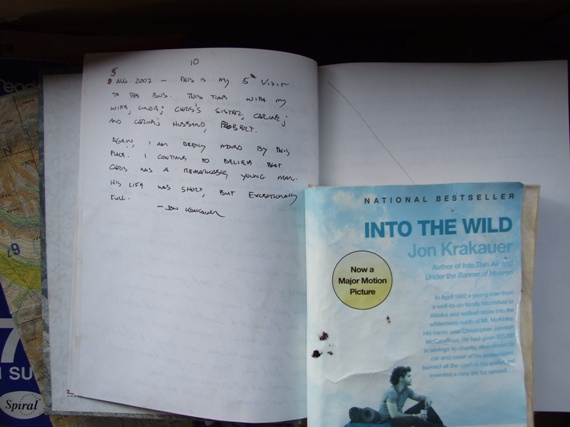 10
5
AUG 2007 – THIS IS MY 5th VISIT
TO THE BUS. THIS TIME WITH MY
WIFE, LINDA; CHRIS'S SISTER, CARINE;
AND CARINE'S HUSBAND, ROBERT.
AGAIN, I AM DEEPLY MOVED BY THIS
PLACE. I CONTINUE TO BELIEVE THAT
CHRIS WAS A REMARKABLE YOUNG MAN.
HIS LIFE WAS SHORT, BUT EXCEPTIONALLY
FULL.
– JON KRAKAUER
NATIONAL BESTSELLER
INTO THE WILD
Jon Krakauer
Author of Into Thin Air and
Under the Banner of Heaven
Now a
Major Motion
Picture
In April 1992 a young man from
a well-to-do family hitchhiked to
Alaska and walked alone into the
wilderness north of Mt. McKinley.
His name was Christopher Johnson
McCandless. He had given $25,000
in savings to charity, abandoned his
car and most of his possessions,
burned all the cash in his wallet, and
invented a new life for himself.
67
7
SU
Spiral